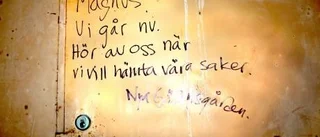 Magnus.
Vi går nu.
Hör av oss när
vi vill hämta våra saker.